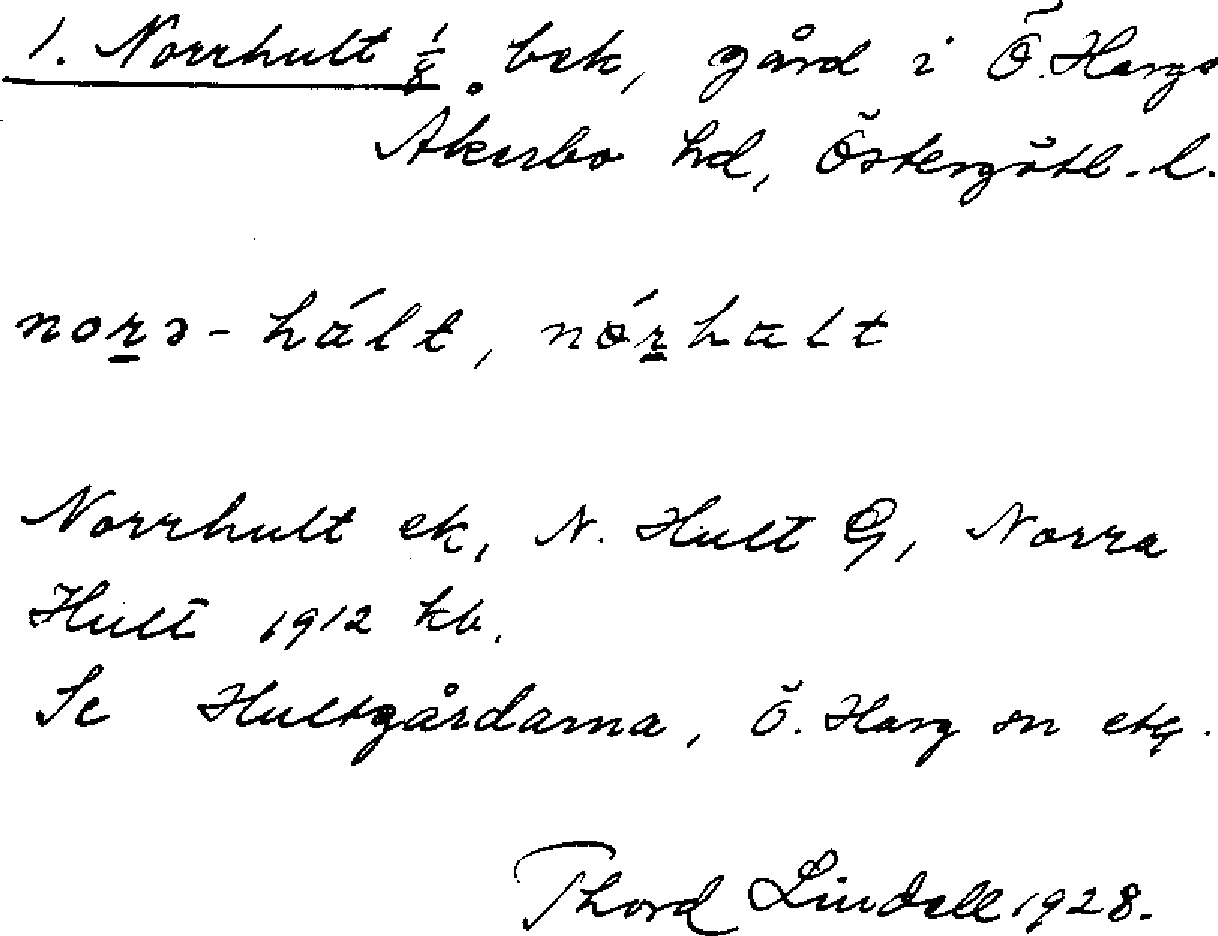 1. Norrhult 1/8 bek, gård i Ö. Hargs
Åkerbo hd, Östergötl. l.
norə-hált, nórhalt
Norrhult ek, N. Hult G, Norra
Hult 1912 kb.
Se Hultgårdarna, Ö. Harg sn etc.
Thord Lindell 1928.